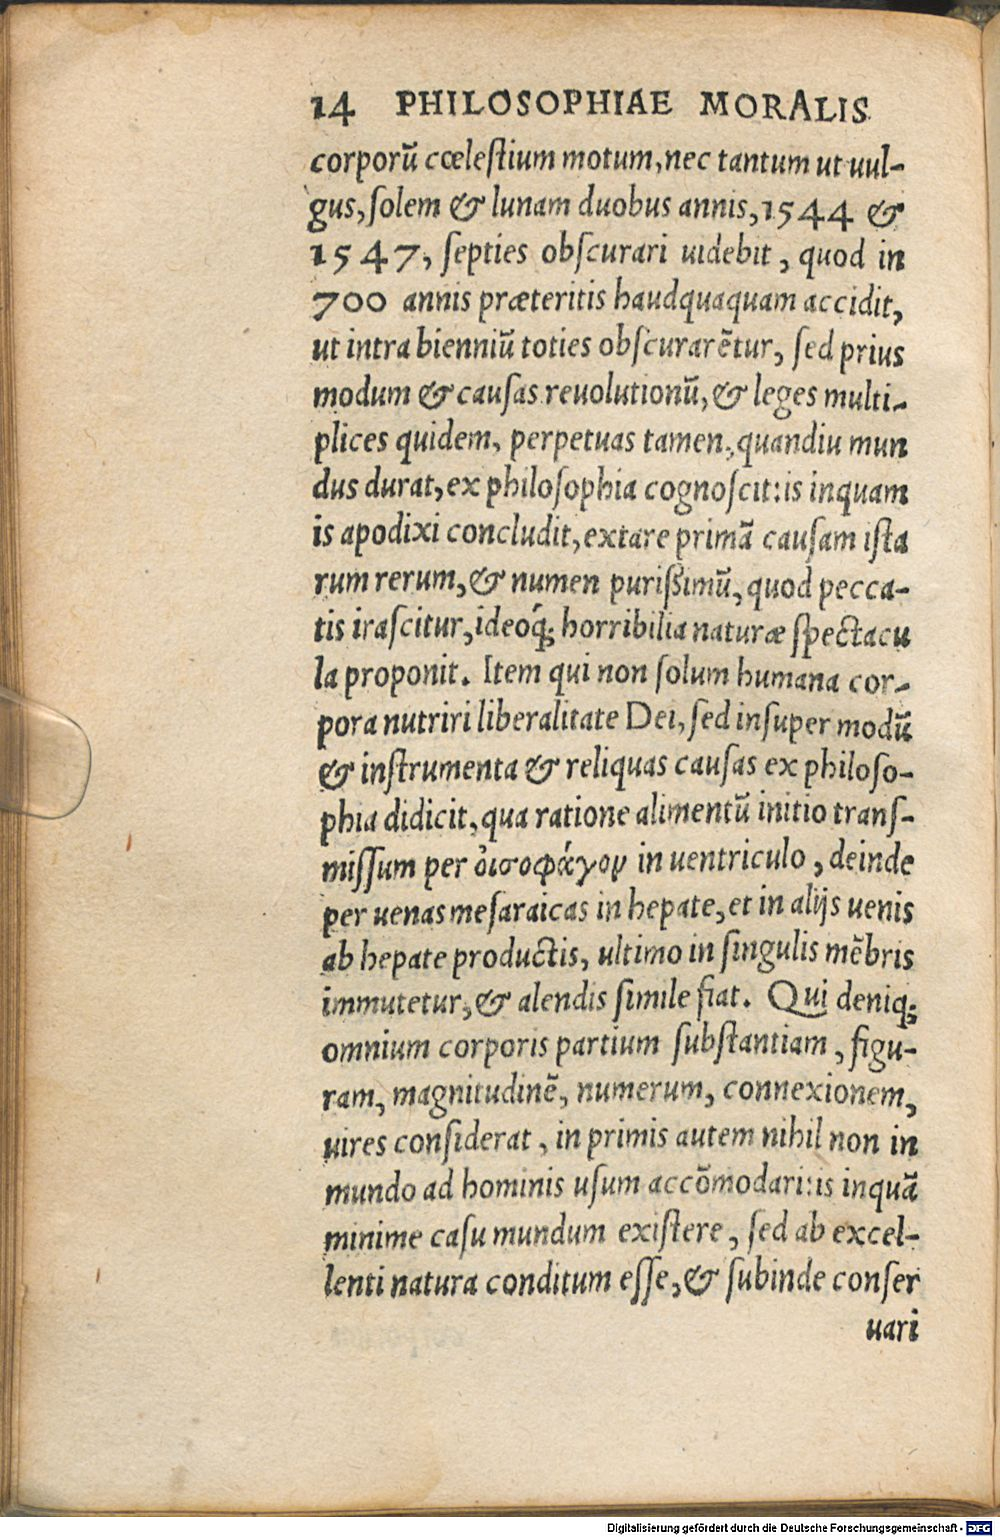 14 PHILOSOPHIAE MORALIS
corporũ cœleſtium motum, nec tantum ut uul-
gus, ſolem & lunam duobus annis, 1544 &
1547, ſepties obſcurari uidebit, quod in
700 annis præteritis haudquaquam accidit,
ut intra bienniũ toties obſcurarẽtur, ſed prius
modum & cauſas reuolutionũ, & leges multi-
plices quidem, perpetuas tamen, quandiu mun
dus durat, ex philoſophia cognoſcit: is inquam
is apodixi concludit, extare primã cauſam iſta
rum rerum, & numen purißimũ, quod pecca-
tis iraſcitur, ideoq́; horribilia naturæ ſpectacu
la proponit. Item qui non ſolum humana cor-
pora nutriri liberalitate Dei, ſed inſuper modũ
& inſtrumenta & reliquas cauſas ex philoſo-
phia didicit, qua ratione alimentũ initio tranſ-
miſſum per ὀισοφάγον in uentriculo, deinde
per uenas meſaraicas in hepate, et in alijs uenis
ab hepate productis, ultimo in ſingulis mẽbris
immutetur, & alendis ſimile fiat. Qui deniq;
omnium corporis partium ſubſtantiam, figu-
ram, magnitudinẽ, numerum, connexionem,
uires conſiderat, in primis autem nihil non in
mundo ad hominis uſum accõmodari: is inquã
minime caſu mundum exiſtere, ſed ab excel-
lenti natura conditum eſſe, & ſubinde conſer
uari
Digitalisierung gefördert durch die Deutsche Forschungsgemeinschaft - DFG